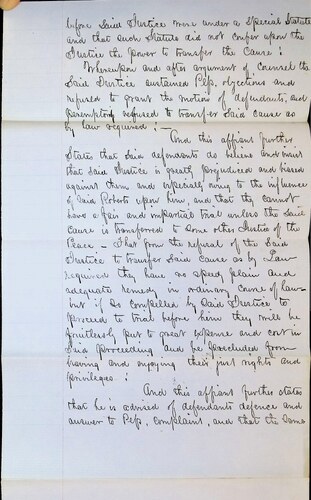 before Said Justice were under a Special Statute
and that such Statute did not confer upon the
Justice the power to transfer the Cause :
Whereupon and after argument of Counsel the
Said Justice sustained Plfs, objections and
refused to grant the motion of defendants, and
peremptorily refused to transfer Said Cause as
by law required ; —
And this affiant further
States that Said defendants do believe and insist
that Said Justice is greatly prejudiced and biased
against them and especially owing to the influence
of Said Roberts upon him, and that they cannot
have a fair and impartial trial unless the Said
Cause is transferred to some other Justice of the
Peace — That from the refusal of the Said
Justice to transfer Said Cause as by Law
required they have no speedy plain and
adequate remedy in ordinary course of law
but if so compelled by Said Justice to
proceed to trial before him they will be
fruitlessly put to great expense and cost in
Said proceeding and be precluded from
having and enjoying their just rights and
privileges :
And this affiant further states
that he is advised of defendants defence and
answer to Plfs, Complaint, and that the Same